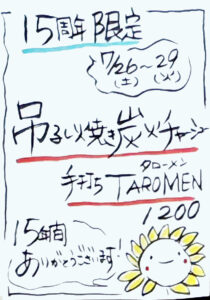 15周年限定
7/26〜29
(土) (火)
吊るし焼き炭火チャーシュー
タローメン
手打ちTAROMEN
1200
15年間
ありがとうございます!